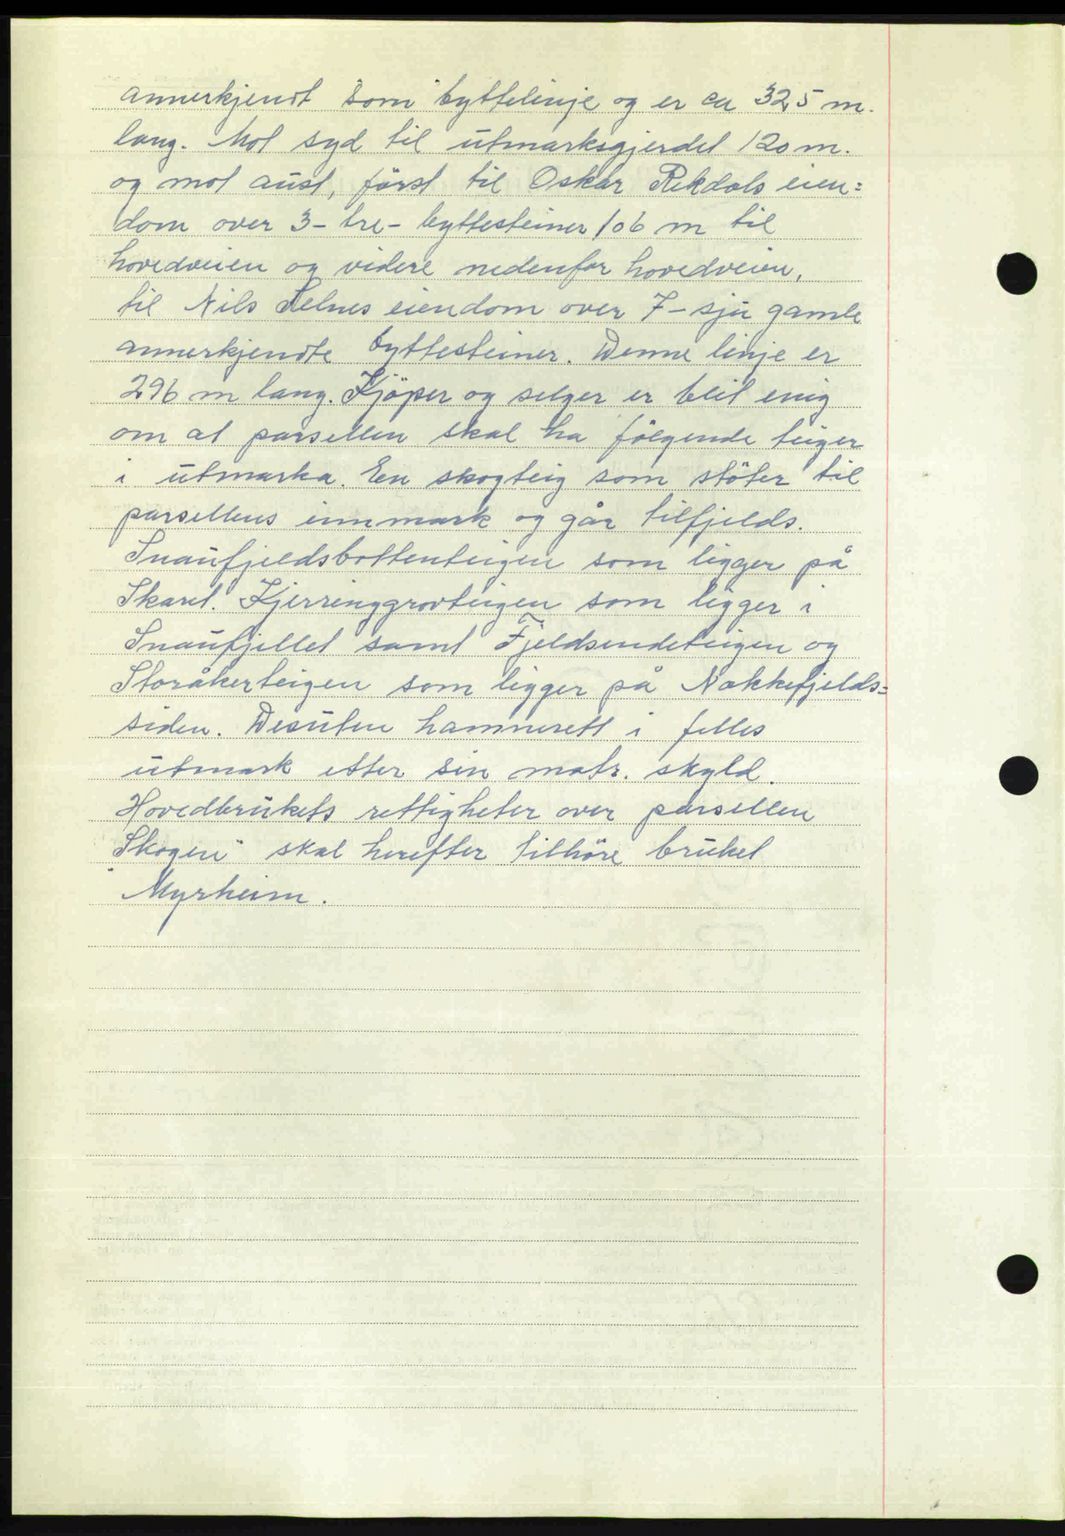 annerkjendt som byttelinje og er ca 325 m.
lang. Mot syd til utmarksgjerdet 120 m.
og mot aust, først til Oskar Rekdals eien=
dom over 3- tre- byttesteiner 106 m til
hovedveien og videre nedenfor hovedveien,
til Nils Selnes eiendom over 7- sju gamle
annerkjendte byttesteiner. Denne linje er
296 m lang. Kjöper og selger er blit enig
om at parsellen skal ha fölgende teiger
i utmarka. En skogteig som stöter til
parsellens innmark og går tilfjelds.
Snaufjeldsbottenteigen som ligger på
Skaret. Kjerringgrovteigen som ligger i
Snaufjellet samt Fjeldsendeteigen og
Storåkerteigen som ligger på Nakkefjelds=
siden. Desuten hamnerett i felles
utmark etter sin matr. skyld.
Hovedbrukets rettigheter over parsellen
Skogen" skal herefter tilhöre bruket
"Myrheim.